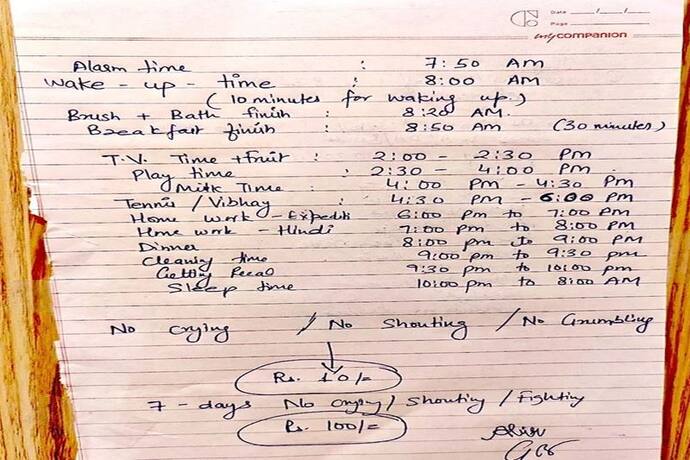 Date __/__/__
Page
mycompanion
Alarm time : 7:50 AM
Wake - up - time : 8:00 AM
(10 minutes for waking up.)
Brush + Bath finish : 8:20 AM.
Breakfast finish : 8:50 Am (30 minutes)
T.V. Time + fruit : 2:00 - 2:30 Pm
Play time : 2:30 - 4:00 Pm.
Milk Time : 4:00 Pm - 4:30 Pm
Tennis / Vibhay : 4:30 Pm - 6:00 Pm
Home work - 6:00 Pm to 7:00 Pm
Home work - Hindi 7:00 Pm to 8:00 Pm
Dinner 8:00 pm to 9:00 Pm
Cleaning time 9:00 Pm to 9:30 pm
Getting 9:30 pm to 10:00 pm
Sleep time 10:00 pm to 8:00 AM
No crying / No Shouting / No Grumbling
Rs. 10/=
7 - days No crying / Shouting / Fighting
Rs. 100/=